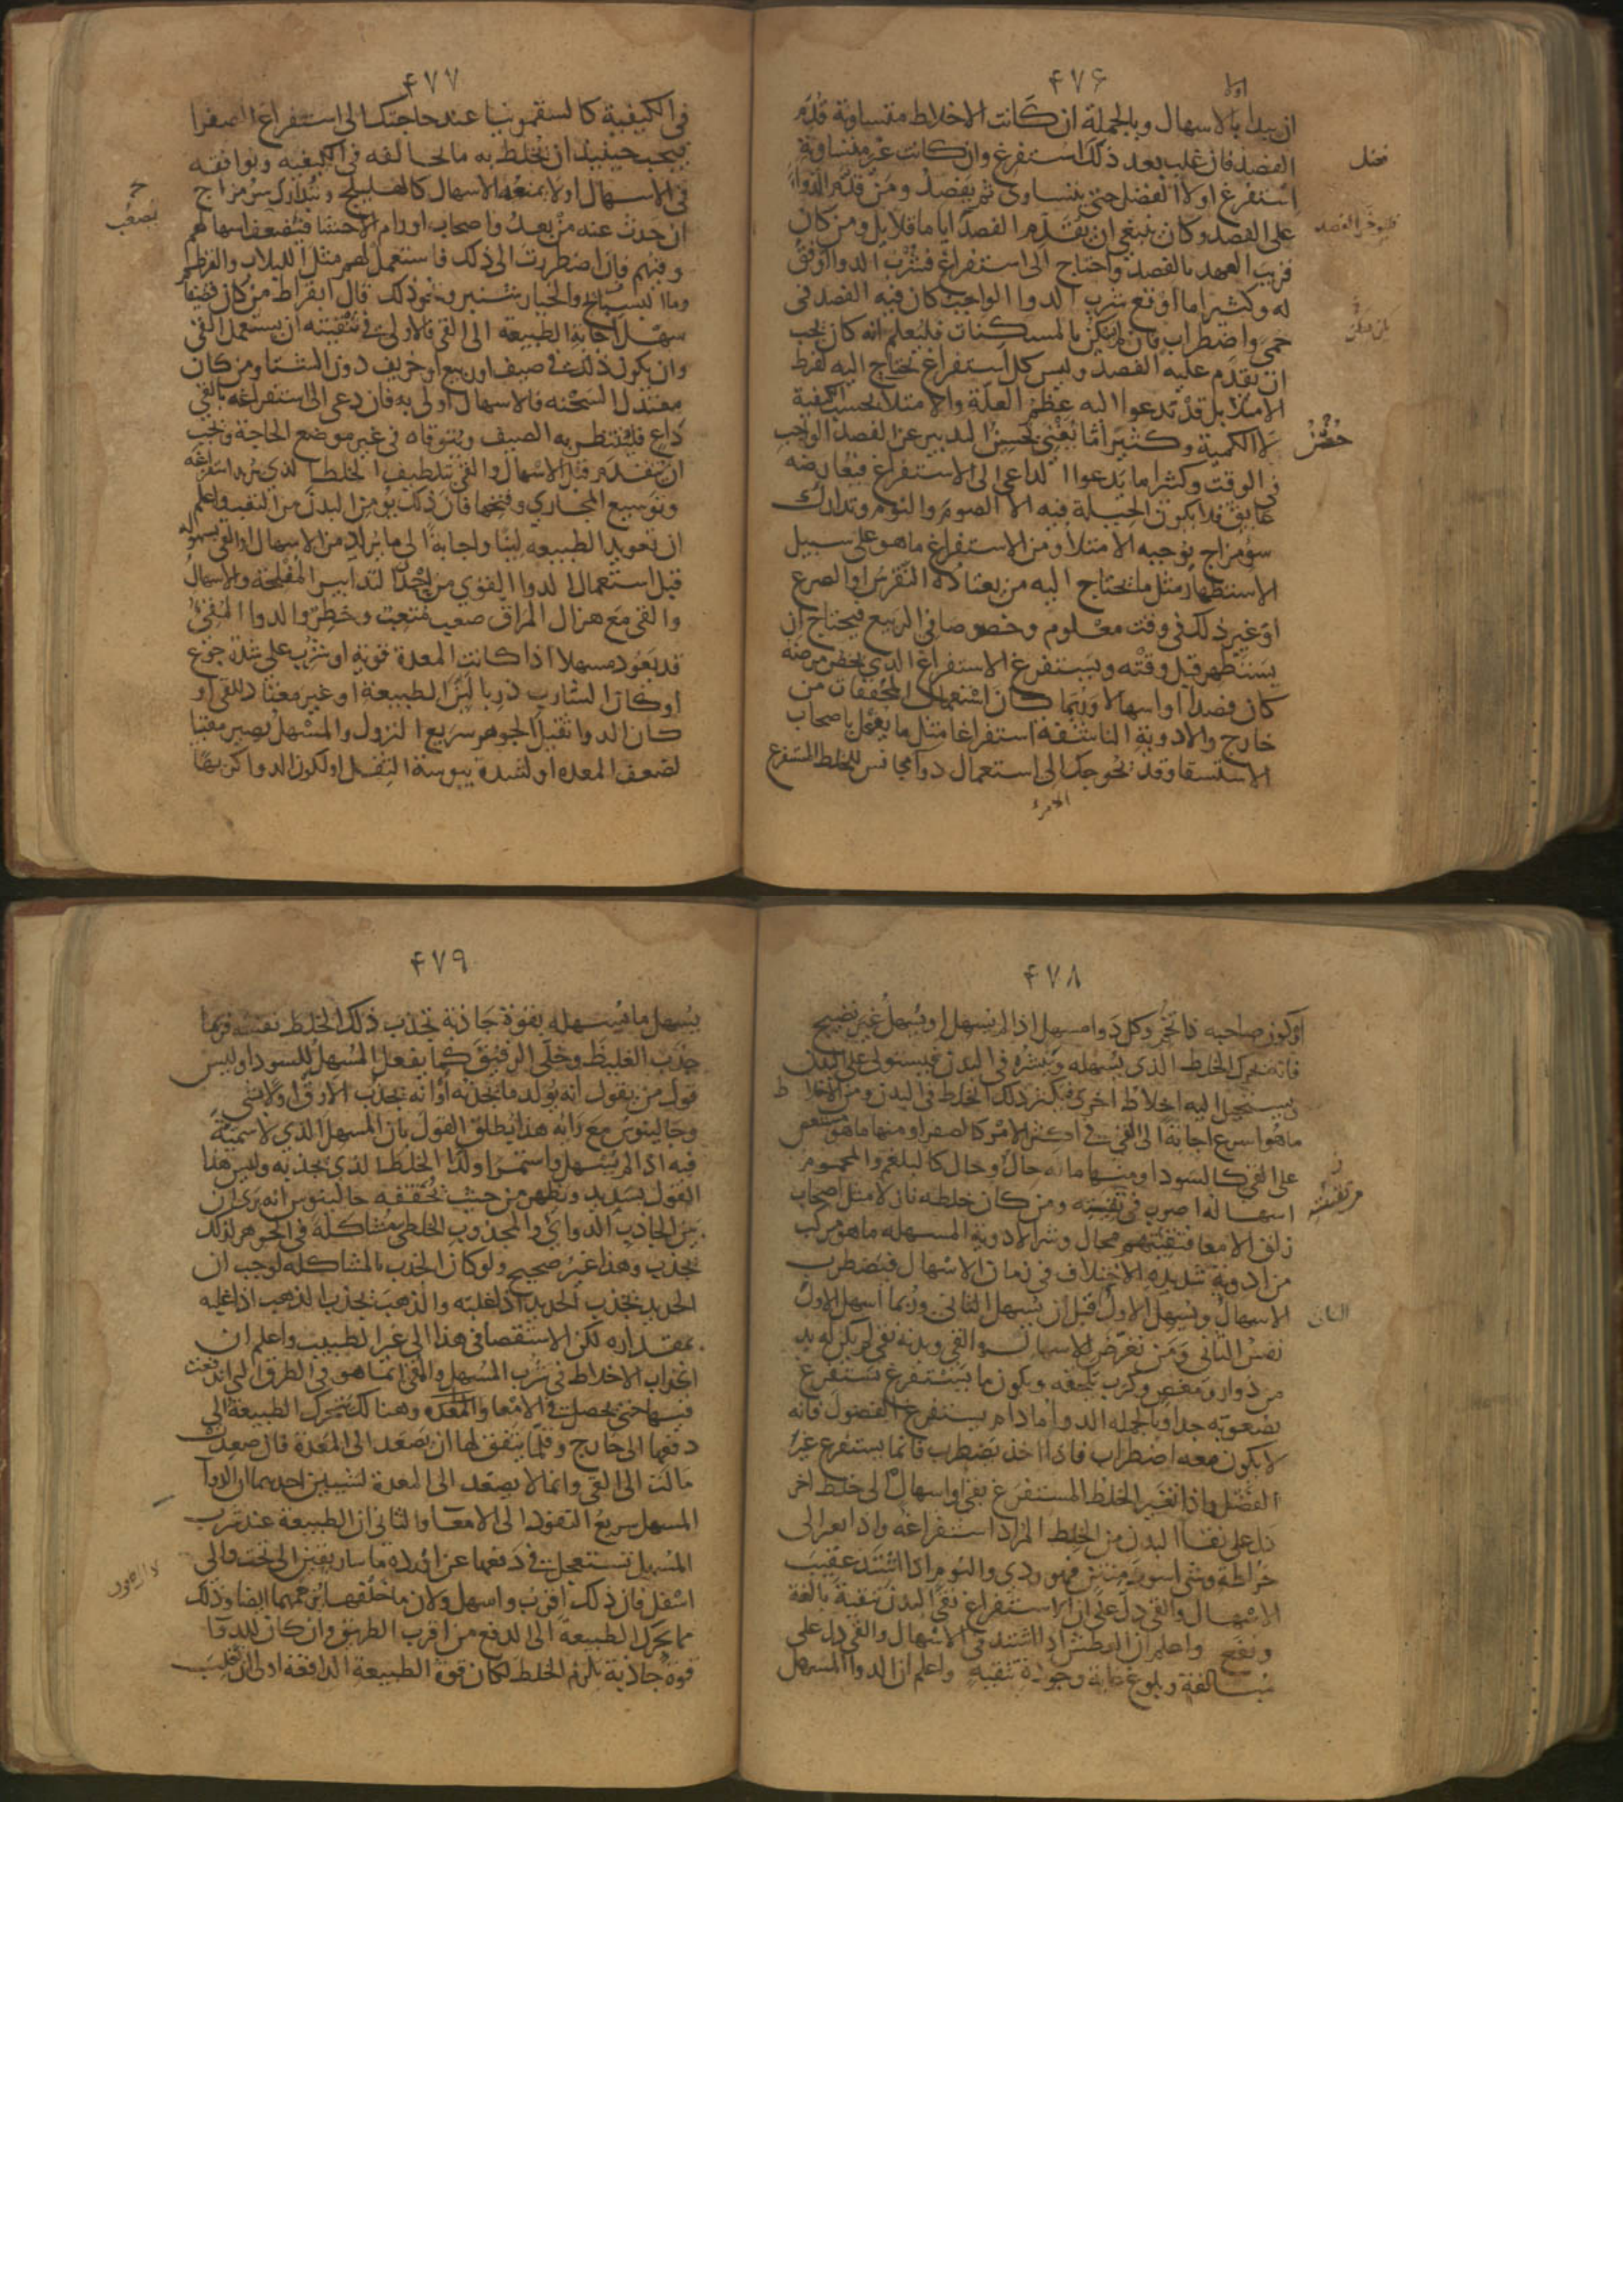 ۴۷۶
اولا
ان يبدا بالاسهال وبالجملة ان كانت الاخلاط متساوية قدم
الفصد فان غلب بعد ذلك استفرغ وان كانت غير متساوية
استفرغ اولا الفضل حتى يتساوى ثم يفصد ومن قدم الدوا
على الفصد وكان ينبغي ان يقدم الفصد اياما قلايل ومن كان
قريب العهد بالفصد واحتاج الى استفراغ فشرب الدوا اوفق
له وكثيرا ما اوقع شرب الدوا الواجب كان فيه الفصد في
حمى واضطراب فان لم يسكن بالمسكنات فليعلم انه كان يجب
ان يقدم عليه الفصد وليس كل استفراغ يحتاج اليه لفرط
الامتلا بل قد تدعوا اليه عظم العلة والامتلا بحسب الكيفية
لا الكمية وكثيرا ما يغني تحسين التدبير عن الفصد الواجب
في الوقت وكثيرا ما يدعوا الداعي الى الاستفراغ فيعارضه
عايق فلا يكون الحيلة فيه الا الصوم والنوم وتدارك
سؤ مزاج يوجبه الامتلا ومن الاستفراغ ما هو على سبيل
الاستظهار مثل ما يحتاج اليه من يعتاده النقرس او الصرع
او غير ذلك في وقت معلوم وخصوصا في الربيع فيحتاج ان
يستظهر قبل وقته ويستفرغ الاستفراغ الذي يخص مرضه
كان فصدا او اسهالا وربما كان استعمال المجففات من
خارج والادوية الناشفة استفراغا مثل ما يفعل باصحاب
الاستسقا وقد تحوجك الى استعمال دوا مجانس للخلط المستفرغ
فليؤخر الفصد
۴۷۷
في الكيفية كالسقمونيا عند حاجتك الى استفراغ الصفرا
فيجب حينيذ ان يخلط به ما يخالفه في الكيفيه ويوافقه
في الاسهال او لا يمنعه الاسهال كالهليلج ويتدارك سو مزاج
ان حدث عنه من بعد واصحاب اورام الاحشا فيضعف اسهالهم
وقيهم فان اضطررت الى ذلك فاستعمل لهم مثل اللبلاب والقرطم
وما البسبايج والخيار شنبر ونحو ذلك قال ابقراط من كان قضيفا
سهل اجابة الطبيعة الى القي فالاولى في تنقيته ان يستعمل القي
وان يكون ذلك في صيف او ربيع او خريف دون الشتا ومن كان
معتدل السحنه فالاسهال اولى به فان دعى الى استفراغه بالقي
داع فلينتظر به الصيف ويتوقاه في غير موضع الحاجة ويجب
ان يتقدم قبل الاسهال والقي بتلطيف الخلط الذي يريد استفراغه
وتوسيع المجاري وفتحها فان ذلك يؤمن البدن من التعب واعلم
ان تعويد الطبيعه لينا واجابة الى ما يراد من الاسهال او القي بسهوله
قبل استعمال الدوا القوي من احدى التدابير المفلحة والاسهال
والقي مع هزال المراق صعب متعب وخطر والدوا المقيئ
قد يعود مسهلا اذا كانت المعدة قوية او شرب على شدة جوع
او كان الشارب ذربا لين الطبيعة او غير معتاد للقي او
كان الدوا ثقيل الجوهر سريع النزول والمسهل يصير مقييا
لضعف المعده او لشدة يبوسة الثفل او لكون الدوا كريها
يصعب
۴۷۸
او كون صاحبه ذا تخم وكل دوا مسهل اذا لم يسهل او يسهل غير نضيج
فانه يحرك الخلط الذي يسهله وينشره في البدن فيستولي على البدن
ويستحيل اليه اخلاط اخرى فيكثر ذلك الخلط في البدن ومن الاخلاط
ما هو اسرع اجابة الى القي في اكثر الامر كالصفرا ومنها ما هو مستعص
على القي كالسودا ومنها ما له حال وحال كالبلغم والمحموم
اسهاله اصوب في تنقيته ومن كان خلطه نازلا مثل اصحاب
زلق الامعا فتنقيتهم محال وشر الادوية المسهله ما هو مركب
من ادوية شديده الاختلاف في زمان الاسهال فيضطرب
الاسهال ويسهل الاول قبل ان يسهل الثاني وربما اسهل الاول
نفس الثاني ومن تعرض للاسهال والقي وبدنه نقي لم يكن له بد
من دوار ومغص وكرب يلحقه ويكون ما يستفرغ يستفرغ
بصعوبه جدا وبالجمله الدوا ما دام يستفرغ الفضول فانه
لا يكون معه اضطراب فاذا اخذ يضطرب فانما يستفرغ غير
الفضل واذا تغير الخلط المستفرغ بقي او اسهال الى خلط اخر
دل على نقا البدن من الخلط المراد استفراغه واذا تغير الى
خراطة وشي اسود منتن فهو ردي والنوم اذا اشتد عقيب
الاسهال والقي دل على ان الاستفراغ نقى البدن تنقية بالغة
ونفع واعلم ان العطش اذا اشتد في الاسهال والقي دل على
مبالغة وبلوغ غاية وجودة تنقيه واعلم ان الدوا المسهل
۴۷۹
يسهل ما يسهله بقوة جاذبة تجذب ذلك الخلط نفسه فربما
جذب الغليظ وخلى الرقيق كما يفعل المسهل للسودا وليس
قول من يقول انه يولد ما يجذبه او انه يجذب الارق اولا بشي
وجالينوس مع رايه هذا يطلق القول بان المسهل الذي لا سمية
فيه اذا لم يسهل واستمرا ولد الخلط الذي يجذبه وليس هذا
القول بسديد ويظهر من حيث يحققه جالينوس انه يرى ان
بين الجاذب الدوائي والمجذوب الخلطي مشاكلة في الجوهر لذلك
يجذب وهذا غير صحيح ولو كان الجذب بالمشاكله لوجب ان
الحديد يجذب الحديد اذا غلبه والذهب يجذب الذهب اذا غلبه
بمقداره لكن الاستقصا في هذا الى غير الطبيب واعلم ان
انجذاب الاخلاط في شرب المسهل والمقي انما هو في الطرق التي اندفعت
فيها حتى يحصل في الامعا والمعده وهنالك يتحرك الطبيعة الى
دفعها الى خارج وقلما يتفق لها ان يصعد الى المعدة فان صعدت
مالت الى القي وانما لا يصعد الى المعدة لشيين احدهما ان الدوا
المسهل سريع النفوذ الى الامعا والثاني ان الطبيعة عند شرب
المسهل تستعجل في دفعها عن اورده ماساريقين الى تحت والى
اسفل فان ذلك اقرب واسهل ولان ما خلفها يزحمها ايضا وذلك
مما يحرك الطبيعة الى الدفع من اقرب الطريق وان كان للدوا
قوة جاذبة يلزم الخلط لكان قوة الطبيعة الدافعه اولى ان تغلب